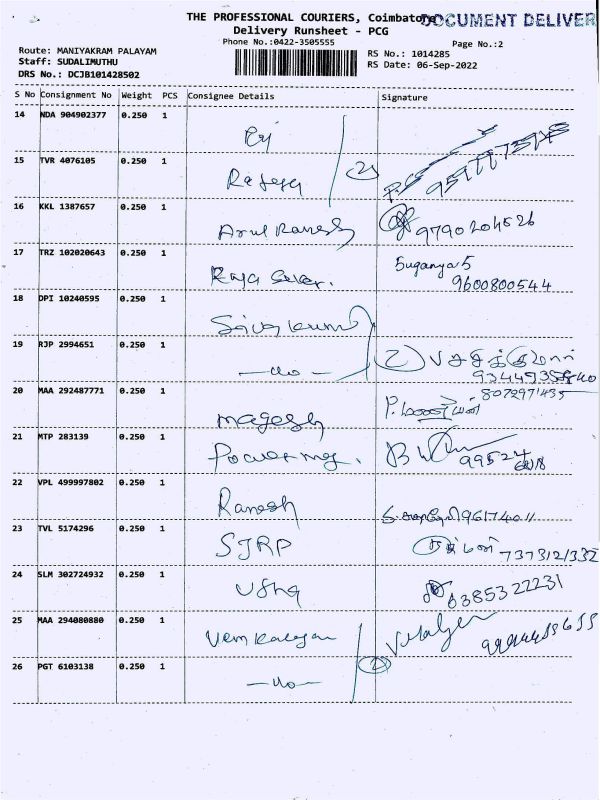 THE PROFESSIONAL COURIERS, Coimbatore
DOCUMENT DELIVER
Delivery Runsheet - PCG
Phone No.:0422-3505555
Page No.:2
Route: MANIYAKRAM PALAYAM
RS No.: 1014285
Staff: SUDALIMUTHU
RS Date: 06-Sep-2022
DRS No.: DCJB101428502
S No Consignment No Weight PCS Consignee Details Signature
14 NDA 904902377 0.250 1
15 TVR 4076105 0.250 1 2
16 KKL 1387657 0.250 1 Arul Ramesh 9790204526
17 TRZ 102020643 0.250 1 Raja Sekar. Suganya S
9600800544
18 DPI 10240595 0.250 1 Sivakumar
19 RJP 2994651 0.250 1 2
20 MAA 292487771 0.250 1 Magesh 8072971435
21 MTP 283139 0.250 1
22 VPL 499997802 0.250 1 Ramesh
23 TVL 5174296 0.250 1 SJRP
24 SLM 302724932 0.250 1 Usha 6385322231
25 MAA 294080880 0.250 1
26 PGT 6103138 0.250 1 2